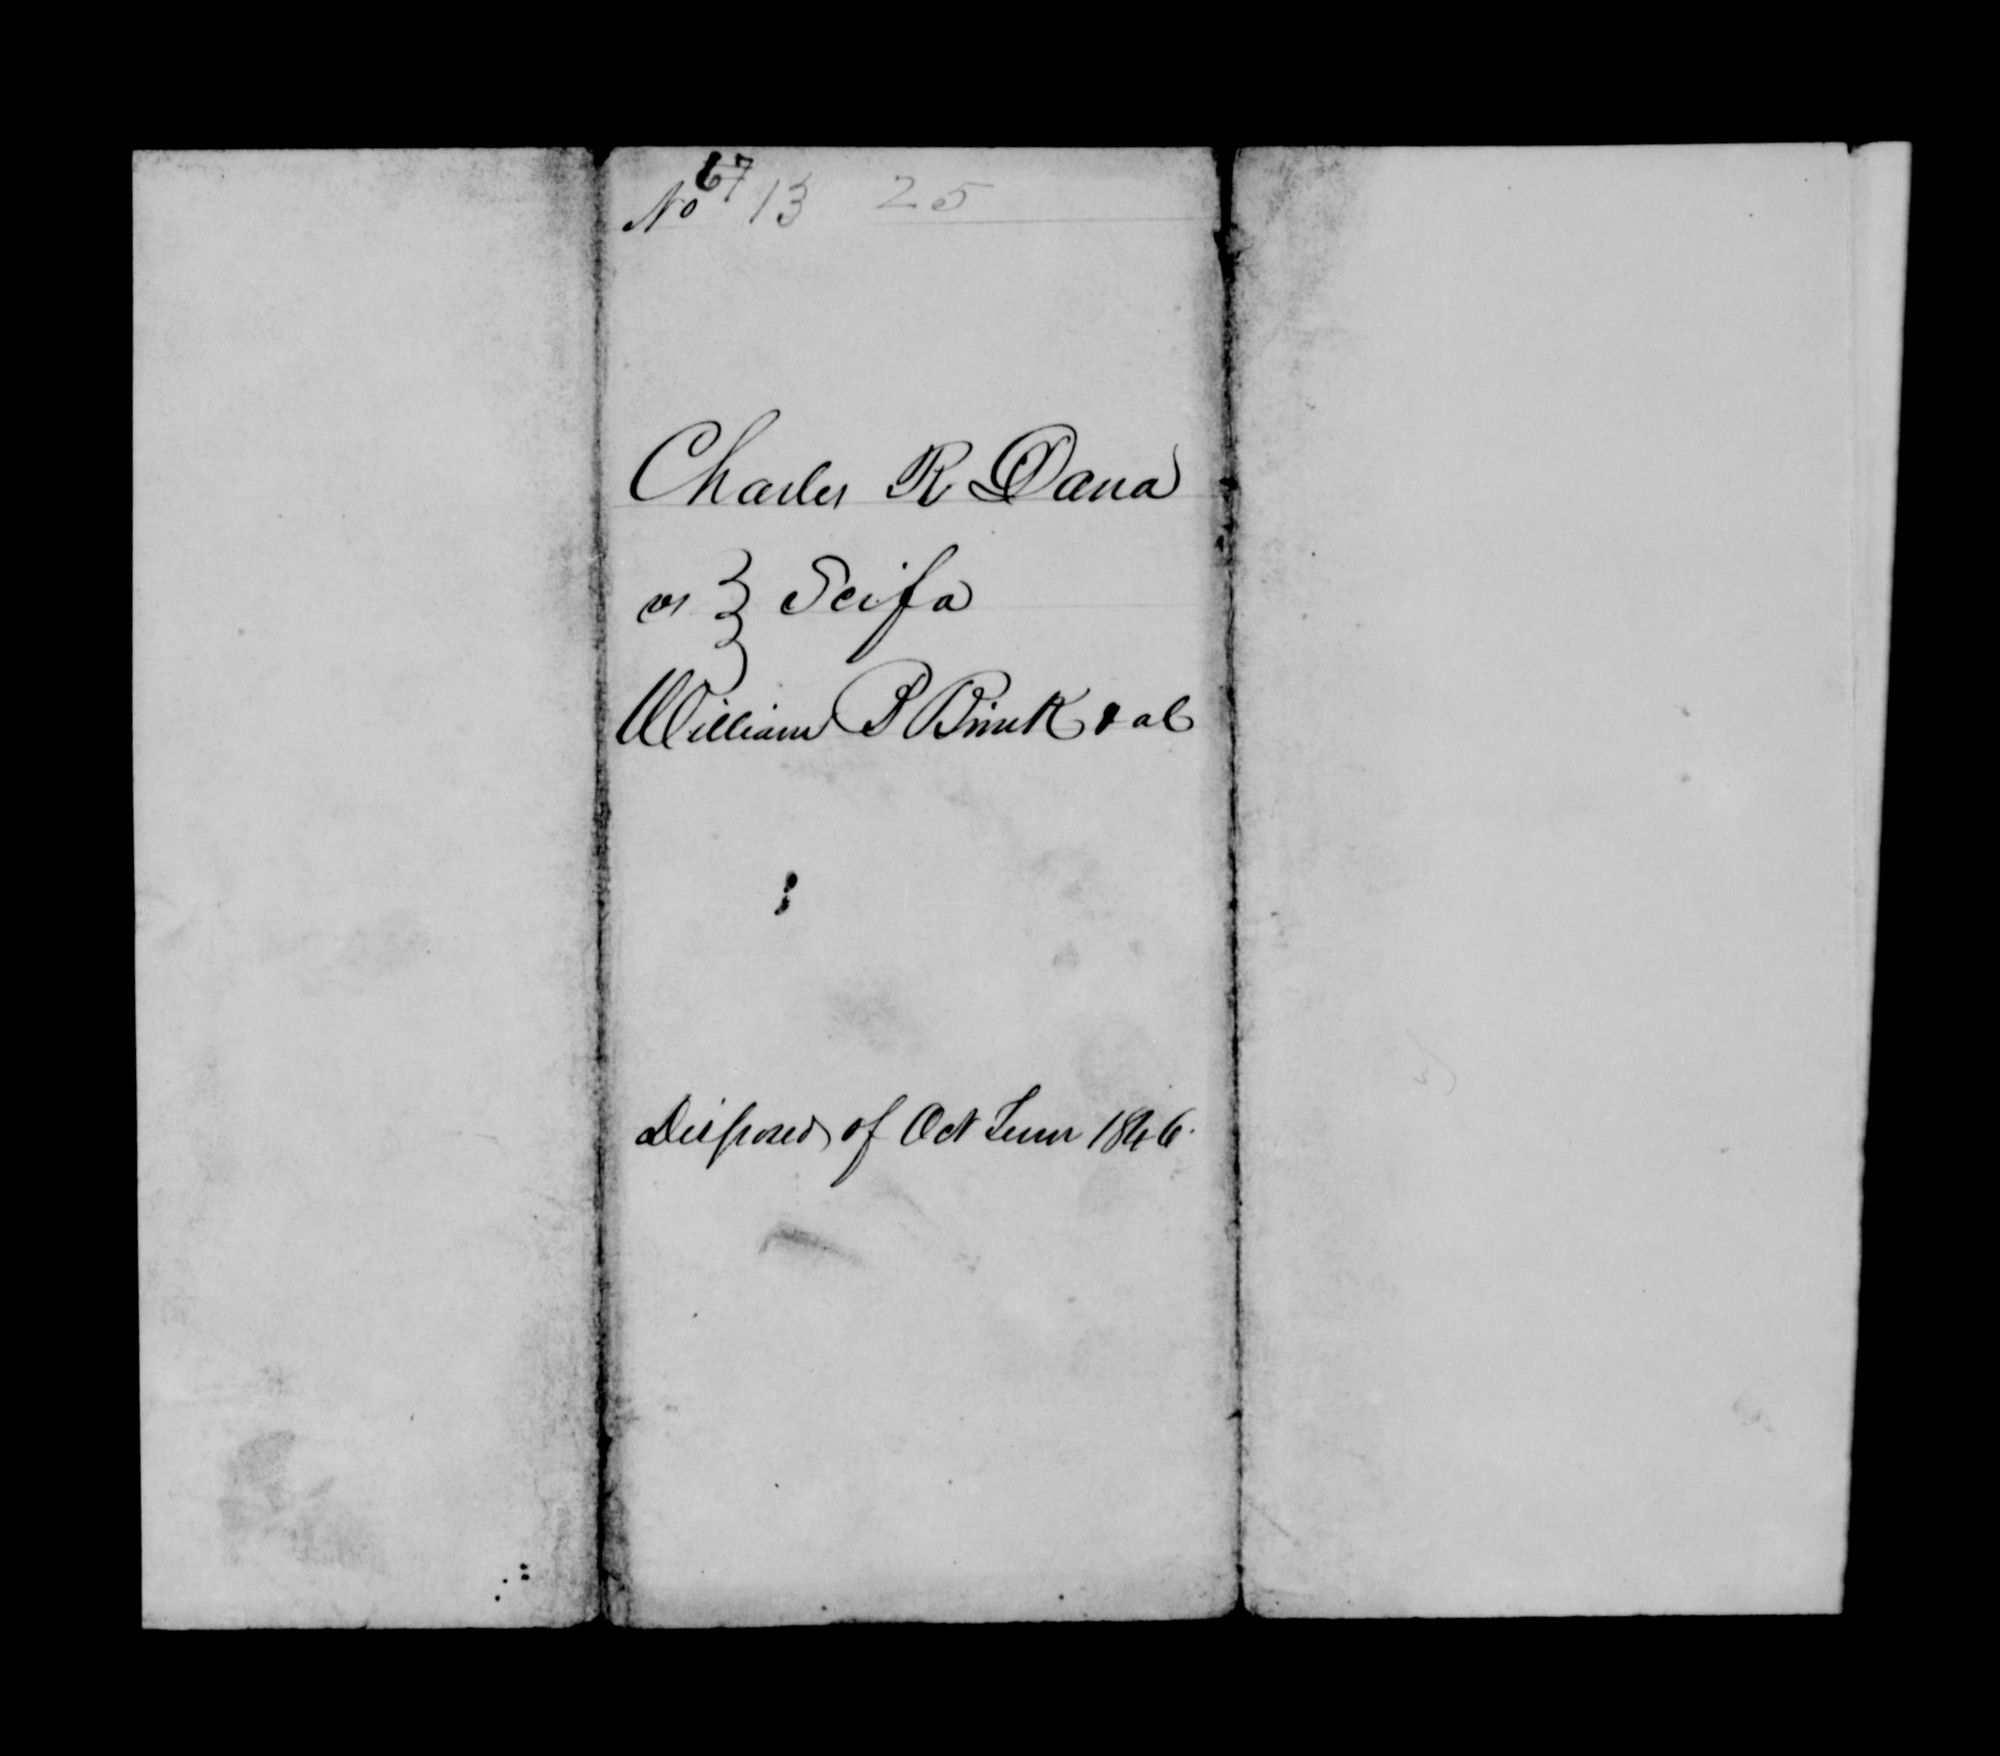 No 67 13 25
Charles R Dana
vs } Scifa
William P Brink & al
Disposed of Oct Term 1846.